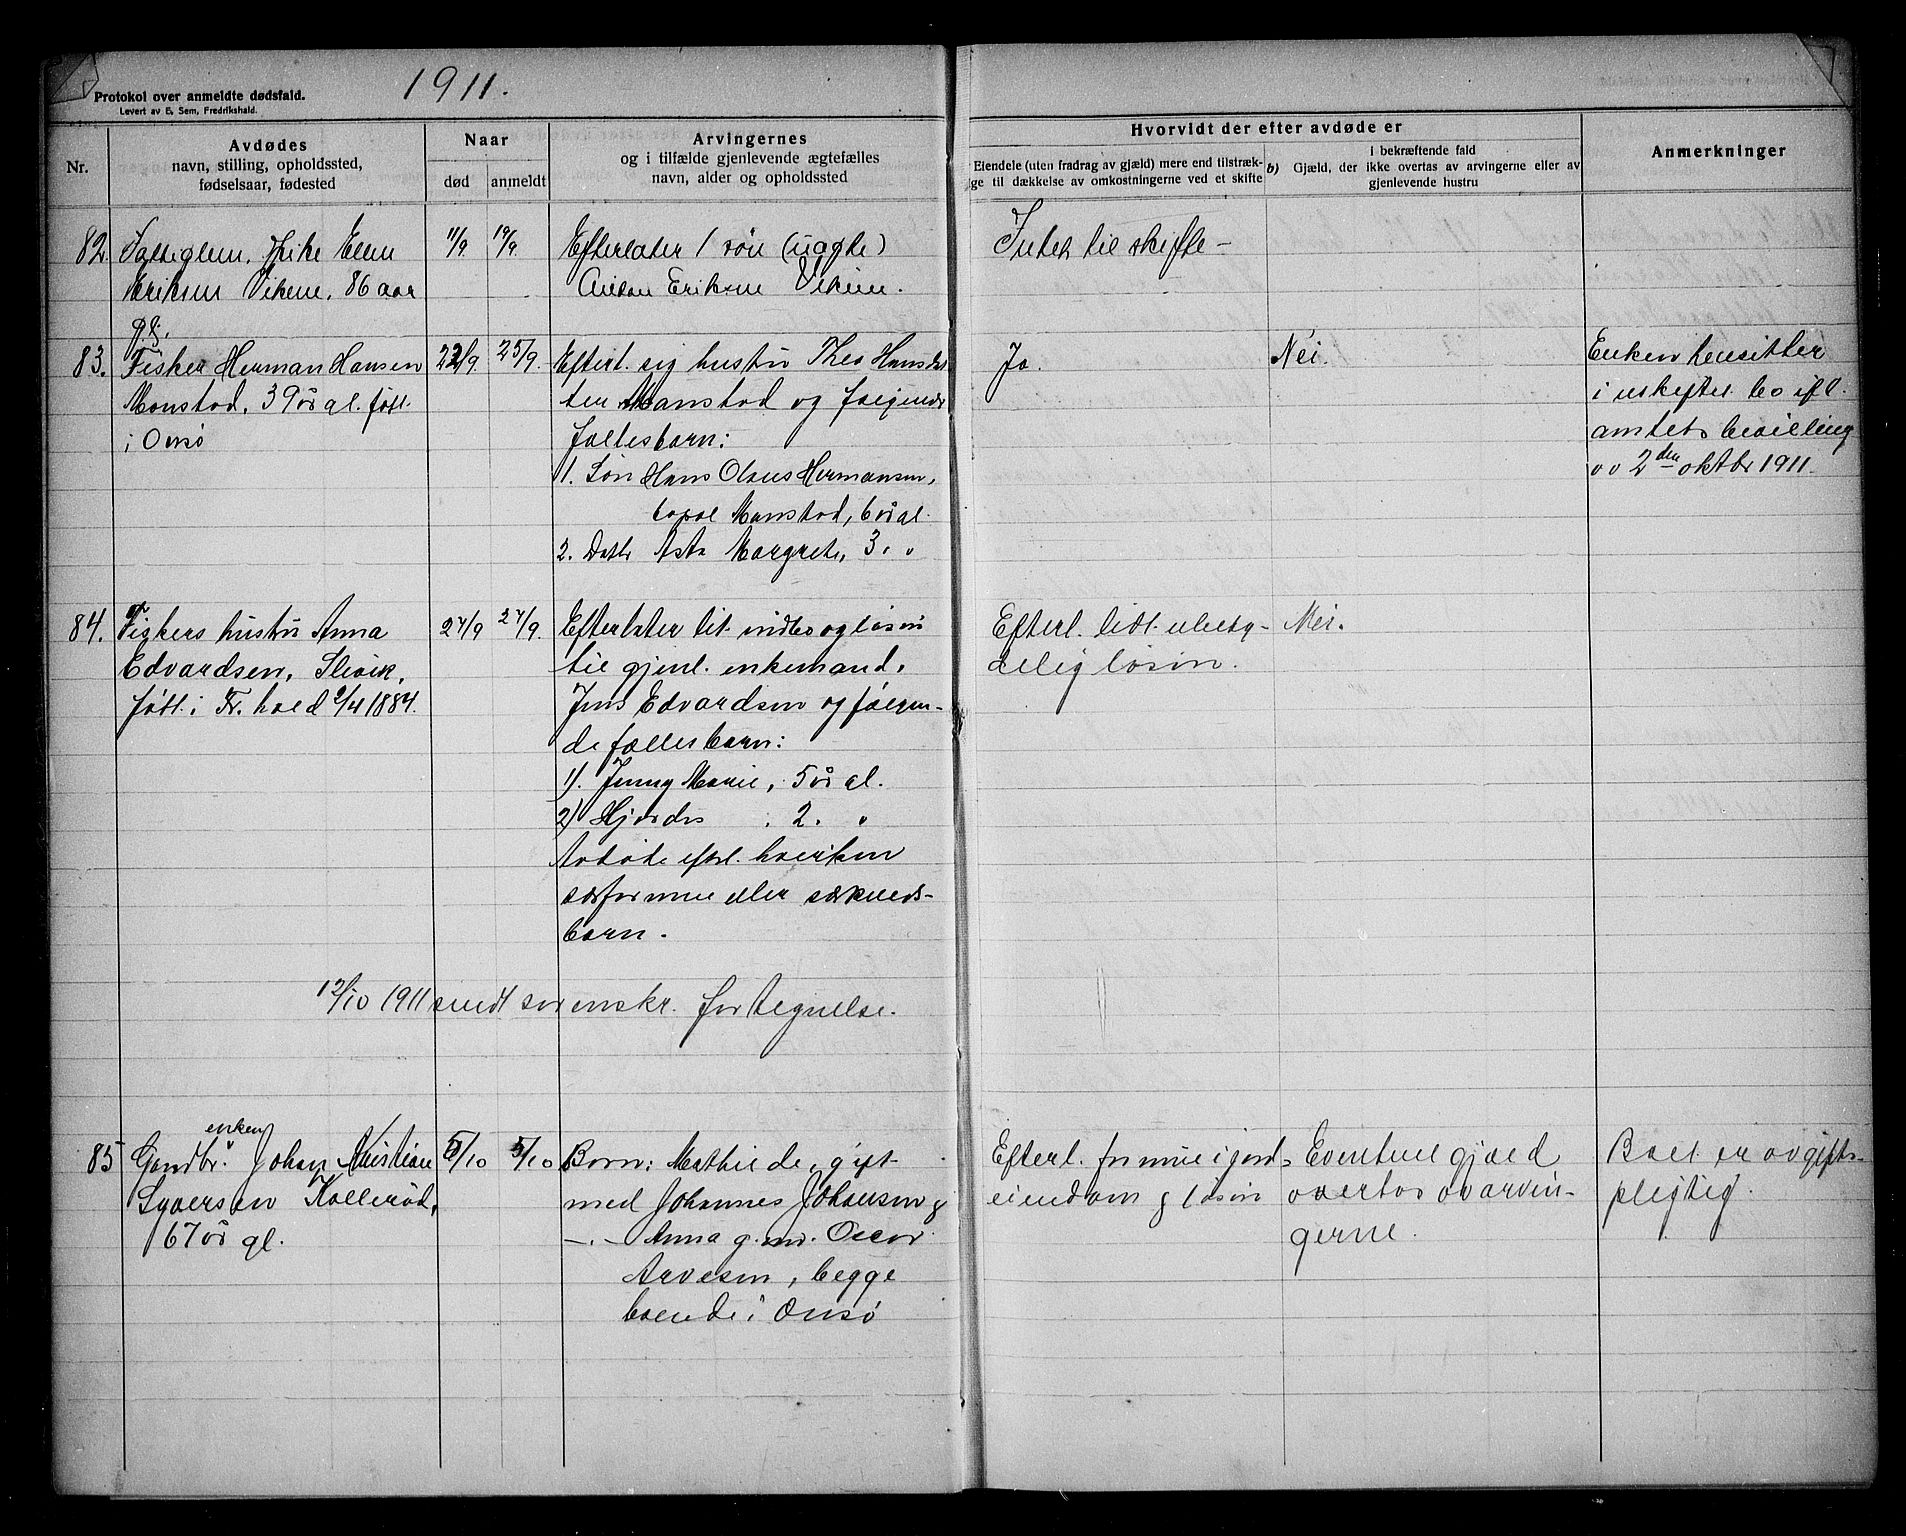 1911.
Protokol over anmeldte dødsfald.
Levert av E. Sem, Fredrikshald.
Nr.
Avdødes
navn, stilling, opholdssted,
fødselsaar, fødested
Naar
død
anmeldt
Arvingernes
og i tilfælde gjenlevende ægtefælles
navn, alder og opholdssted
Hvorvidt der efter avdøde er
Eiendele (uten fradrag av gjæld) mere end tilstræk-
ge til dækkelse av omkostningerne ved et skifte
b)
i bekræftende fald
Gjæld, der ikke overtas av arvingerne eller av
gjenlevende hustru
Anmerkninger
82. Fattiglem, Enke Ellen
Eriksen Vikene, 86 aar
gl.
11/9
19/9.
Efterlater 1 søn (uægte)
Eriksen Vikene.
Intet til skifte –
83. Fisker Herman Hansen
Monstad, 39 år gl. født
i Onsø
22/9.
25/9.
Efterl. sig hustru Thea Hansdat
ter Manstad og følgende
fællesbarn:
1. Søn Hans Olaus Hermansen,
bopæl Manstad, 6 år gl.
2. Dattr Asta Margrete, 3. "
Ja.
Nei.
Enken hensitter
i uskiftet bo ifl.
amtets bevilling
av 2den oktbr 1911.
84. Fiskers hustru Anna
Edvardsen, Slevik,
født i Fr.hald 2/4 1884.
27/9
27/9.
Efterlater lit. indbo og løsøre
til gjenl. enkemand,
Jens Edvardsen og følgen-
de fællesbarn:
1). Jenny Marie, 5 år gl.
2) Hjørdis . 2. "
Avdøde efterl. hverken
særformue eller særkuelds-
barn.
Efterl. lidt ubety-
delig løsøre.
Nei.
12/10 1911 sendt sorenskr. fortegnelse.
85 Gaardbr. enken Johan Kristian
Syversen Kollerød,
67 år gl.
5/10
5/10
Barn: Mathilde, gift
med Johannes Johansen &
–.– Anna g. m. Oscar
Arvesen, begge
boende i Onsø
Efterl. formue i jord-
eiendom & løsøre
Eventuel gjæld
overtas av arvin-
gerne.
Boet er avgifts-
pligtig.